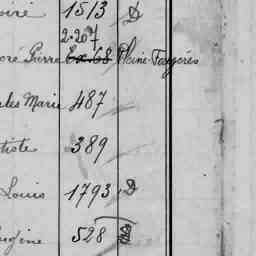 oire 1513 D
2.267
oré Pierre Ex.68 Pleine-Fougères
les Marie 487
tiste 389
Louis 1793 D
ugène 528